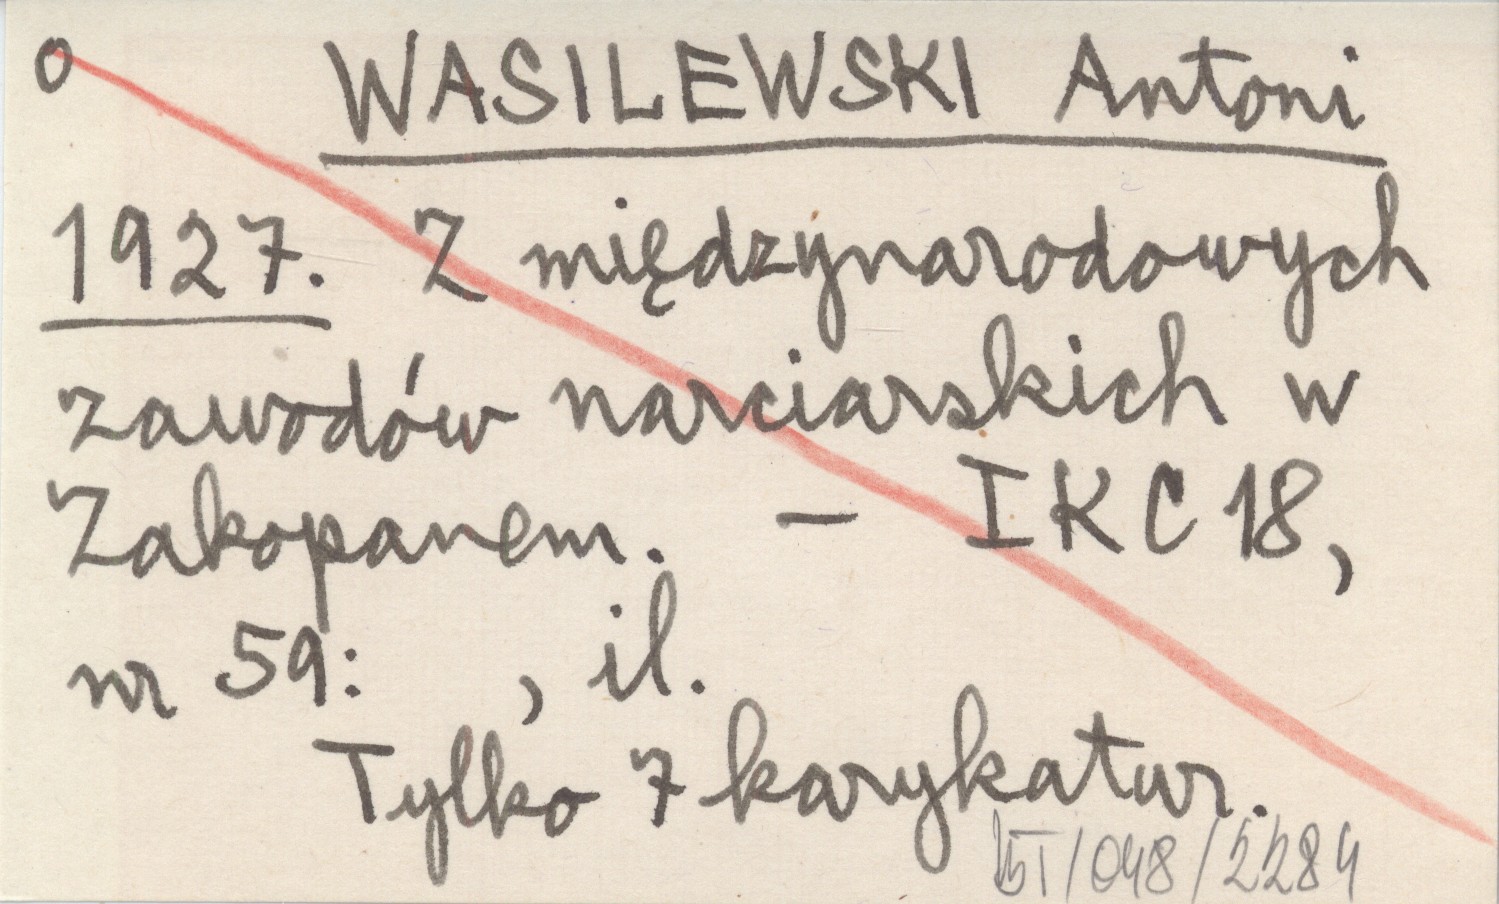 O WASILEWSKI Antoni
1927. Z międzynarodowych
zawodów narciarskich w
Zakopanem. – IKC 18,
nr 59: , il.
Tylko 7 karykatur.
/048/2284